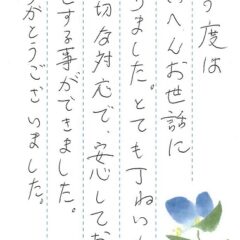 の度は
いへんお世話に
りました。とても丁ねいな
切な対応で、安心してお
とする事ができました。
がとうございました。